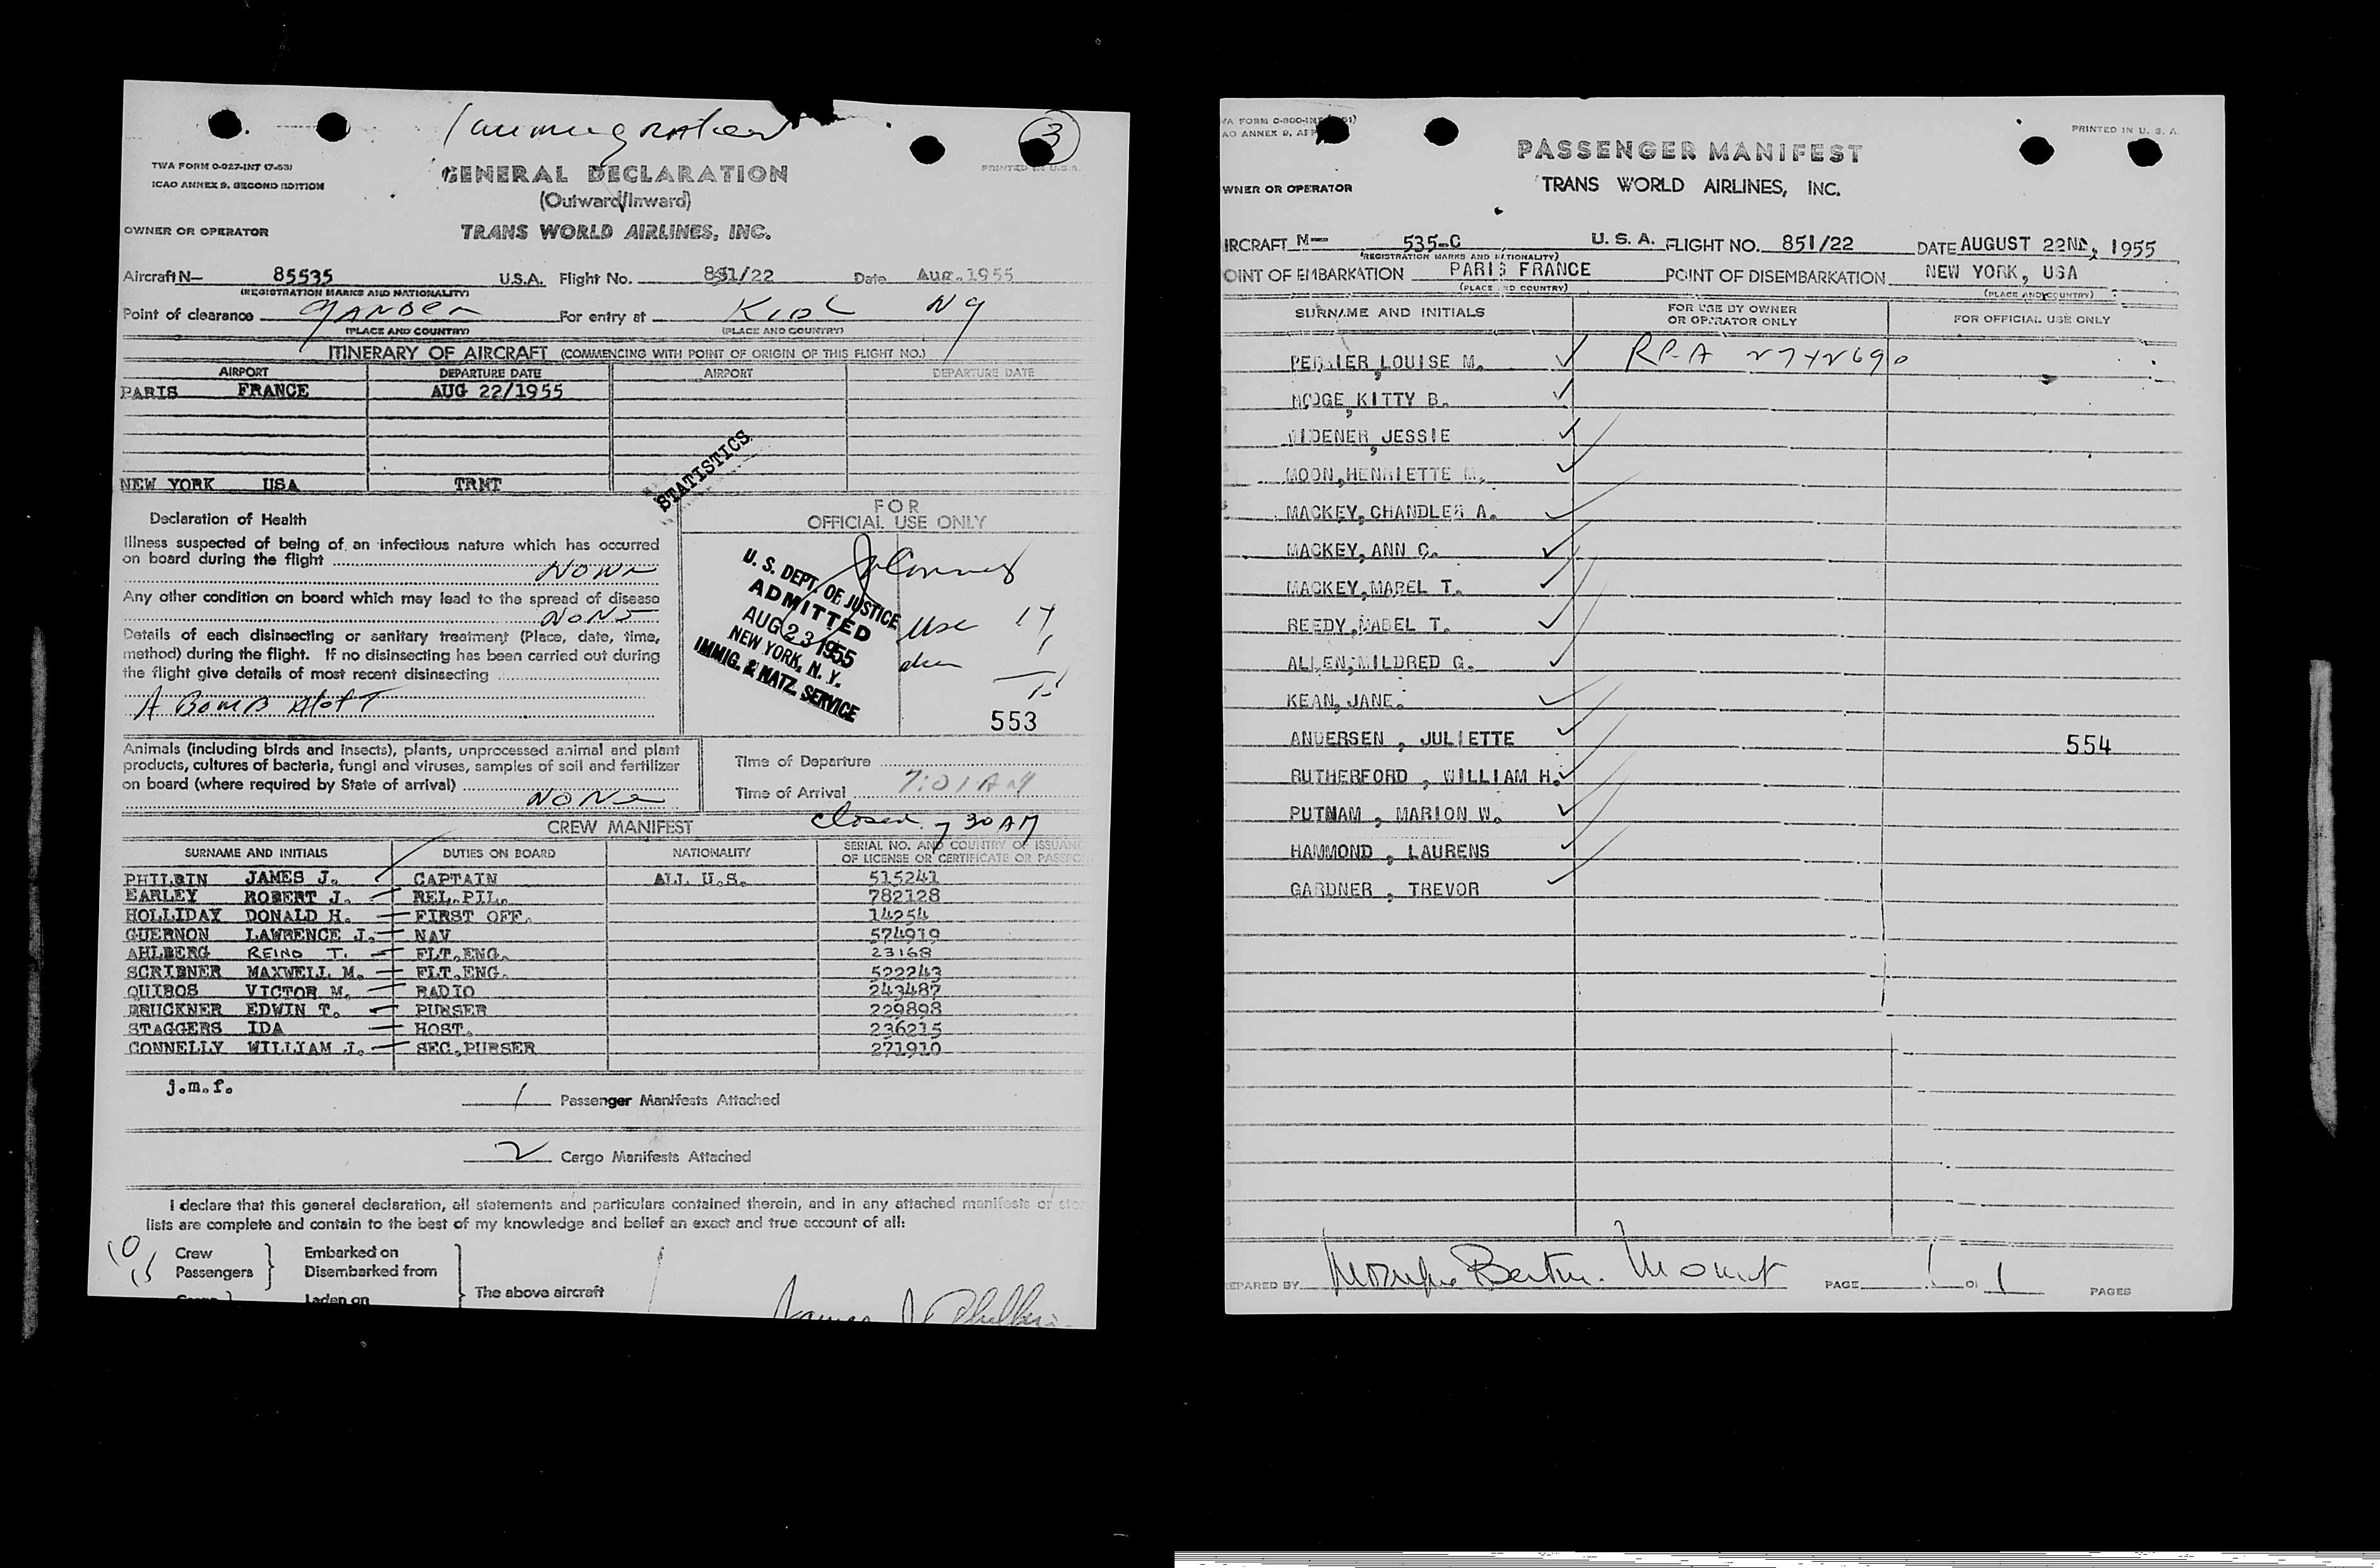 Immigration
3
TWA FORM 0-927-INT (7-53)
ICAO ANNEX 9, SECOND EDITION
PRINTED IN U.S.A.
GENERAL DECLARATION
(Outward/Inward)
OWNER OR OPERATOR
TRANS WORLD AIRLINES, INC.
Aircraft N— 85535 U.S.A. Flight No. 851/22 Date Aug. 1955
(REGISTRATION MARKS AND NATIONALITY)
Point of clearance GANDER For entry at KIDL NY
(PLACE AND COUNTRY) (PLACE AND COUNTRY)
ITINERARY OF AIRCRAFT (COMMENCING WITH POINT OF ORIGIN OF THIS FLIGHT NO.)
AIRPORT DEPARTURE DATE AIRPORT DEPARTURE DATE
PARIS FRANCE AUG 22/1955
NEW YORK USA TRMT
STATISTICS
Declaration of Health
Illness suspected of being of an infectious nature which has occurred
on board during the flight NONE
Any other condition on board which may lead to the spread of disease
NONE
Details of each disinsecting or sanitary treatment (Place, date, time,
method) during the flight. If no disinsecting has been carried out during
the flight give details of most recent disinsecting
A BOMB Aloft
FOR
OFFICIAL USE ONLY
U. S. DEPT. OF JUSTICE
ADMITTED
AUG 23 1955
NEW YORK, N. Y.
IMMIG. & NATZ. SERVICE
553
Animals (including birds and insects), plants, unprocessed animal and plant
products, cultures of bacteria, fungi and viruses, samples of soil and fertilizer
on board (where required by State of arrival)
NONE
Time of Departure
Time of Arrival 7:01 AM
Closed 7 30 AM
CREW MANIFEST
SURNAME AND INITIALS DUTIES ON BOARD NATIONALITY SERIAL NO. AND COUNTRY OF ISSUANC
OF LICENSE OR CERTIFICATE OR PASSPO
PHILBIN JAMES J. CAPTAIN ALL U.S. 515241
EARLEY ROBERT J. REL.PIL. 782128
HOLLIDAY DONALD H. FIRST OFF. 14254
GUERNON LAWRENCE J. NAV 574919
AHLBERG REINO T. FLT.ENG. 23168
SCRIBNER MAXWELL M. FLT.ENG. 522243
QUIROS VICTOR M. RADIO 243487
BRUCKNER EDWIN T. PURSER 229898
STAGGERS IDA HOST. 236215
CONNELLY WILLIAM J. SEC.PURSER 271910
j.m.f.
1 Passenger Manifests Attached
2 Cargo Manifests Attached
I declare that this general declaration, all statements and particulars contained therein, and in any attached manifests or
lists are complete and contain to the best of my knowledge and belief an exact and true account of all:
10 Crew Embarked on
15 Passengers Disembarked from
The above aircraft
Cargo Laden on
James J Philbin
WA FORM 0-800-INT
AO ANNEX 9,
PRINTED IN U. S. A.
PASSENGER MANIFEST
WNER OR OPERATOR
TRANS WORLD AIRLINES, INC.
IRCRAFT N— 535-C U. S. A. FLIGHT NO. 851/22 DATE AUGUST 22ND, 1955
(REGISTRATION MARKS AND NATIONALITY)
OINT OF EMBARKATION PARIS FRANCE POINT OF DISEMBARKATION NEW YORK, USA
(PLACE AND COUNTRY) (PLACE AND COUNTRY)
SURNAME AND INITIALS FOR USE BY OWNER
OR OPERATOR ONLY FOR OFFICIAL USE ONLY
LOUISE M. 2742690
KITTY B.
WIDENER, JESSIE
MOON, HENRIETTE M.
MACKEY, CHANDLER A.
MACKEY, ANN C.
MACKEY, MABEL T.
REEDY, MABEL T.
ALLEN, MILDRED G.
KEAN, JANE.
ANDERSEN , JULIETTE 554
RUTHERFORD , WILLIAM H.
PUTNAM , MARION W.
HAMMOND , LAURENS
GARDNER , TREVOR
EPARED BY PAGE 1 OF 1 PAGES